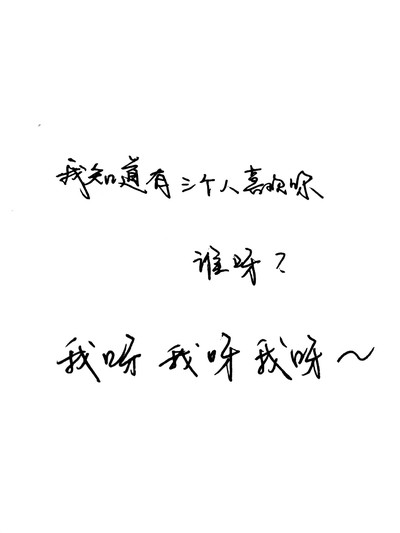 我知道有三个人喜欢你
谁呀？
我呀 我呀 我呀～